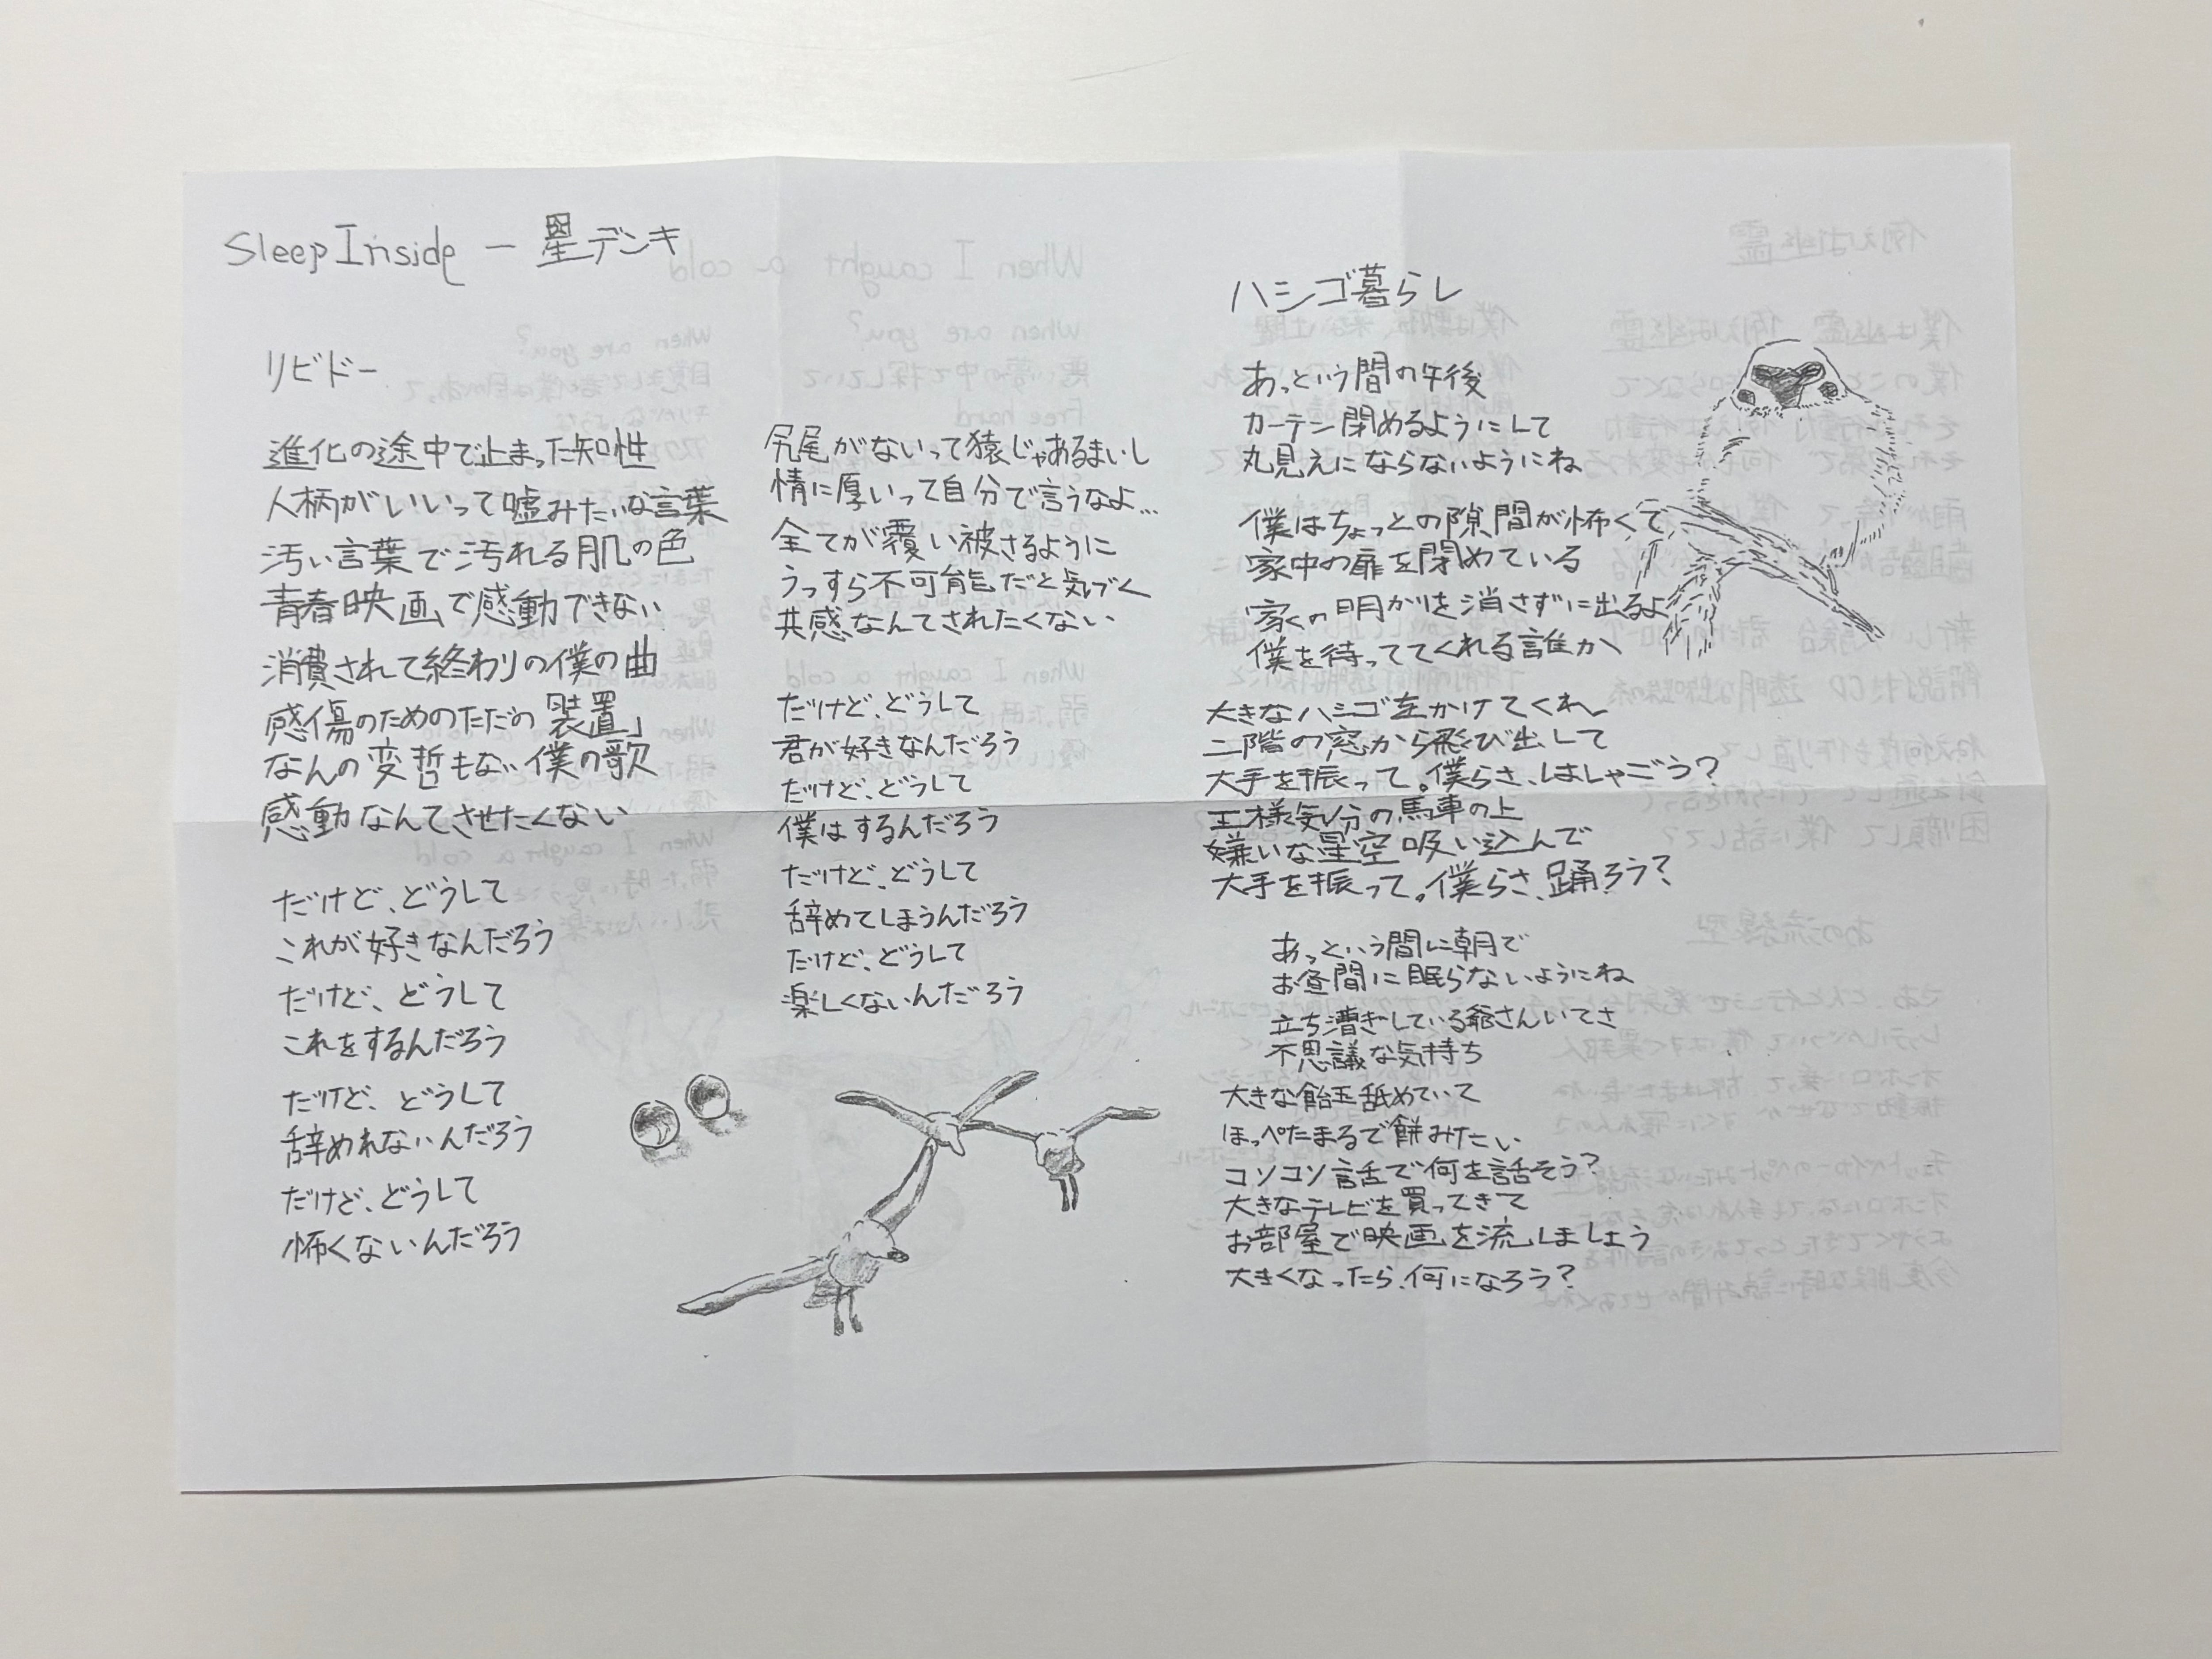 Sleep Inside — 星デンキ
リビドー
進化の途中で止まった知性
人柄がいいって嘘みたいな言葉
汚い言葉で汚れる肌の色
青春映画で感動できない
消費されて終わりの僕の曲
感傷のためのただの「装置」
なんの変哲もない僕の歌
感動なんてさせたくない
だけど、どうして
これが好きなんだろう
だけど、どうして
これをするんだろう
だけど、どうして
辞めれないんだろう
だけど、どうして
怖くないんだろう
尻尾がないって猿じゃあるまいし
情に厚いって自分で言うなよ…
全てが覆い被さるように
うっすら不可能だと気づく
共感なんてされたくない
だけど、どうして
君が好きなんだろう
だけど、どうして
僕はするんだろう
だけど、どうして
辞めてしまうんだろう
だけど、どうして
楽しくないんだろう
ハシゴ暮らし
あっという間の午後
カーテン閉めるようにして
丸見えにならないようにね
僕はちょっとの隙間が怖くて
家中の扉を閉めている
家の明かりを消さずに出るよ
僕を待っててくれる誰か
大きなハシゴをかけてくれ
二階の窓から飛び出して
大手を振って。僕らさ、はしゃごう?
王様気分の馬車の上
嫌いな星空吸い込んで
大手を振って。僕らさ、踊ろう?
あっという間に朝で
お昼間に眠らないようにね
立ち漕ぎしている爺さんいてさ
不思議な気持ち
大きな飴玉舐めていて
ほっぺたまるで餅みたい
コソコソ話で何を話そう?
大きなテレビを買ってきて
お部屋で映画を流しましょう
大きくなったら、何になろう?